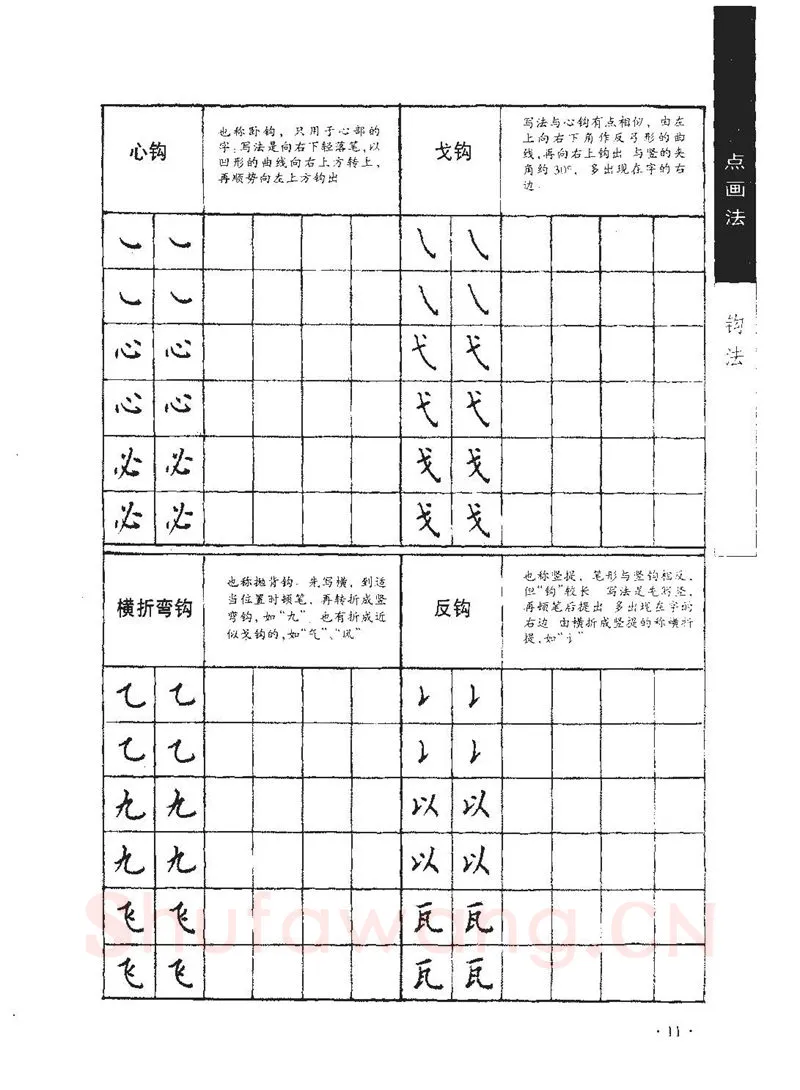 点画法
钩法
心钩
也称卧钩，只用于心部的
字；写法是向右下轻落笔，以
凹形的曲线向右上方转上，
再顺势向左上方钩出
戈钩
写法与心钩有点相似，由左
上向右下角作反弓形的曲
线，再向右上钩出 与竖的夹
角约30°，多出现在字的右
边
心 心 弋 弋
心 心 弋 弋
必 必 戈 戈
必 必 戈 戈
横折弯钩
也称抛背钩 先写横，到适
当位置时顿笔，再转折成竖
弯钩，如“九” 也有折成近
似戈钩的，如“气”、“风”
反钩
也称竖提，笔形与竖钩相反，
但“钩”较长 写法是先写竖，
再顿笔后提出 多出现在字的
右边 由横折成竖提的称横折
提，如“讠”
乙 乙
乙 乙
九 九 以 以
九 九 以 以
飞 飞 瓦 瓦
飞 飞 瓦 瓦
Shufawang.CN
·11·